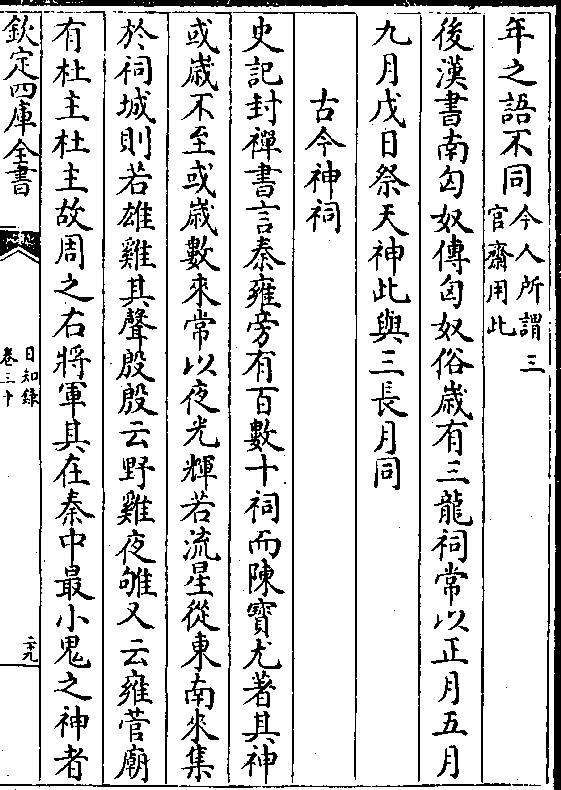 年之語不同今人所謂三官齋用此
後漢書南匈奴傳匈奴俗歳有三龍祠常以正月五月
九月戊日祭天神此與三長月同
古今神祠
史記封禪書言秦雍旁有百數十祠而陳寶尤著其神
或歳不至或歳數來常以夜光輝若流星從東南來集
於祠城則若雄雞其聲殷殷云野雞夜雊又云雍菅廟
有杜主杜主故周之右將軍其在秦中最小鬼之神者
欽定四庫全書
日知錄
卷三十
二十九